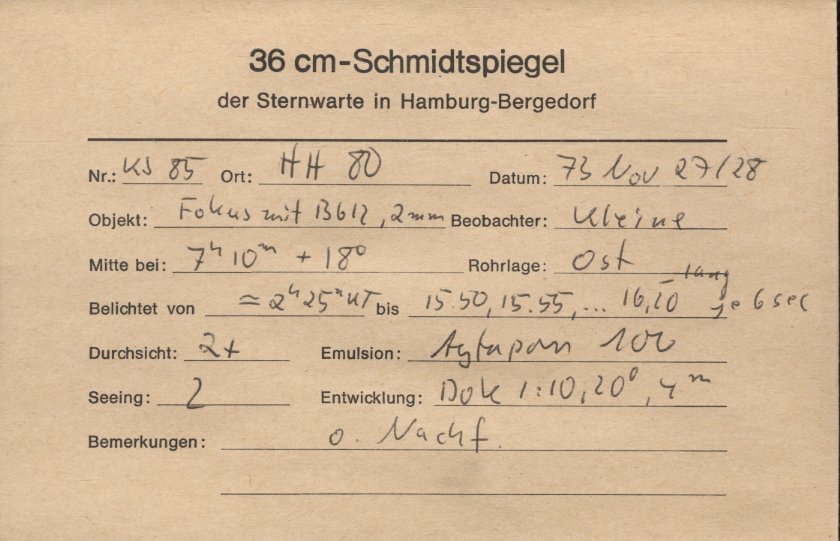 36 cm-Schmidtspiegel
der Sternwarte in Hamburg-Bergedorf
Nr.: KS 85 Ort: HH 80 Datum: 73 Nov 27/28
Objekt: Fokus mit BG12, 2mm Beobachter: Kleine
Mitte bei: 7ʰ 10ᵐ + 18° Rohrlage: Ost
Belichtet von ≈ 2ʰ 25ᵐ UT bis 15.50, 15.55, ... 16,20 lang je 6 sec
Durchsicht: 2+ Emulsion: Agfapan 100
Seeing: 2 Entwicklung: Dok 1:10, 20°, 4ᵐ
Bemerkungen: o. Nachf.